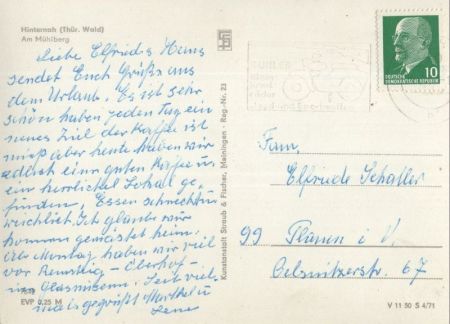 Hinternah (Thür. Wald)
Am Mühlberg
Liebe Elfriede Hans
sendet Euch Grüße aus
dem Urlaub. Es ist sehr
schön haben jeden Tag ein
neues Ziel der Kaffee ist
mieß aber heute haben wir
endlich einen guten Kaffee u
ein herrliches Lokal ge-
funden, Essen schmeckt uns
reichlich. Ich glaube wir
kommen gemästet heim.
Montag haben wir viel
vor Rennsteig - Oberhof -
Glasmuseum. Seit viel-
mals gegrüßt
EVP 0,25 M
Kunstanstalt Straub & Fischer, Meiningen - Reg.-Nr. 23
SUHLER
DEUTSCHE
DEMOKRATISCHE REPUBLIK
10
Fam.
Elfriede Schaller
99 Plauen i. V.
Oelsnitzerstr. 67
V 11 50 S 4/71